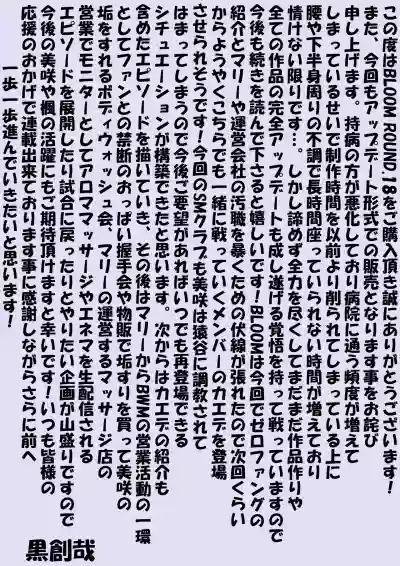 この度はBLOOM ROUND,18をご購入頂き誠にありがとうございます!
また、今回もアップデート形式での販売となります事をお詫び
申し上げます。持病の方が悪化しており病院に通う頻度が増えて
しまっているせいで制作時間を以前より削られてしまっている上に
腰や下半身周りの不調で長時間座っていられない時間が増えており
情けない限りです…。しかし諦めず全力を尽くしてまだまだ作品作りや
全ての作品の完全アップデートも成し遂げる覚悟を持って戦っていますので
今後も続きを読んで下さると嬉しいです!BLOOMは今回でゼロファングの
紹介とマリーや運営会社の汚職を暴くための伏線が張れたので次回くらい
からようやくこちらでも一緒に戦っていくメンバーのカエデを登場
させられそうです!今回のSMクラブも美咲は猿谷に調教されて
はまってしまうので今後ご要望があればいつでも再登場できる
シチュエーションが構築できたと思います。次からはカエデの紹介も
含めたエピソードを描いていき、その後はマリーからBWMの営業活動の一環
としてファンとの禁断のおっぱい握手会や物販で垢すりを買って美咲の
垢をするボディウォッシュ会、マリーの運営するマッサージ店の
営業でモニターとしてアロママッサージやエネマを生配信される
エピソードを展開したり試合に戻ったりとやりたい企画が山盛りですので
今後の美咲や楓の活躍にもご期待頂けますと幸いです!いつも皆様の
応援のおかげで連載出来ております事に感謝しながらさらに前へ
一歩一歩進んでいきたいと思います!
黒創哉